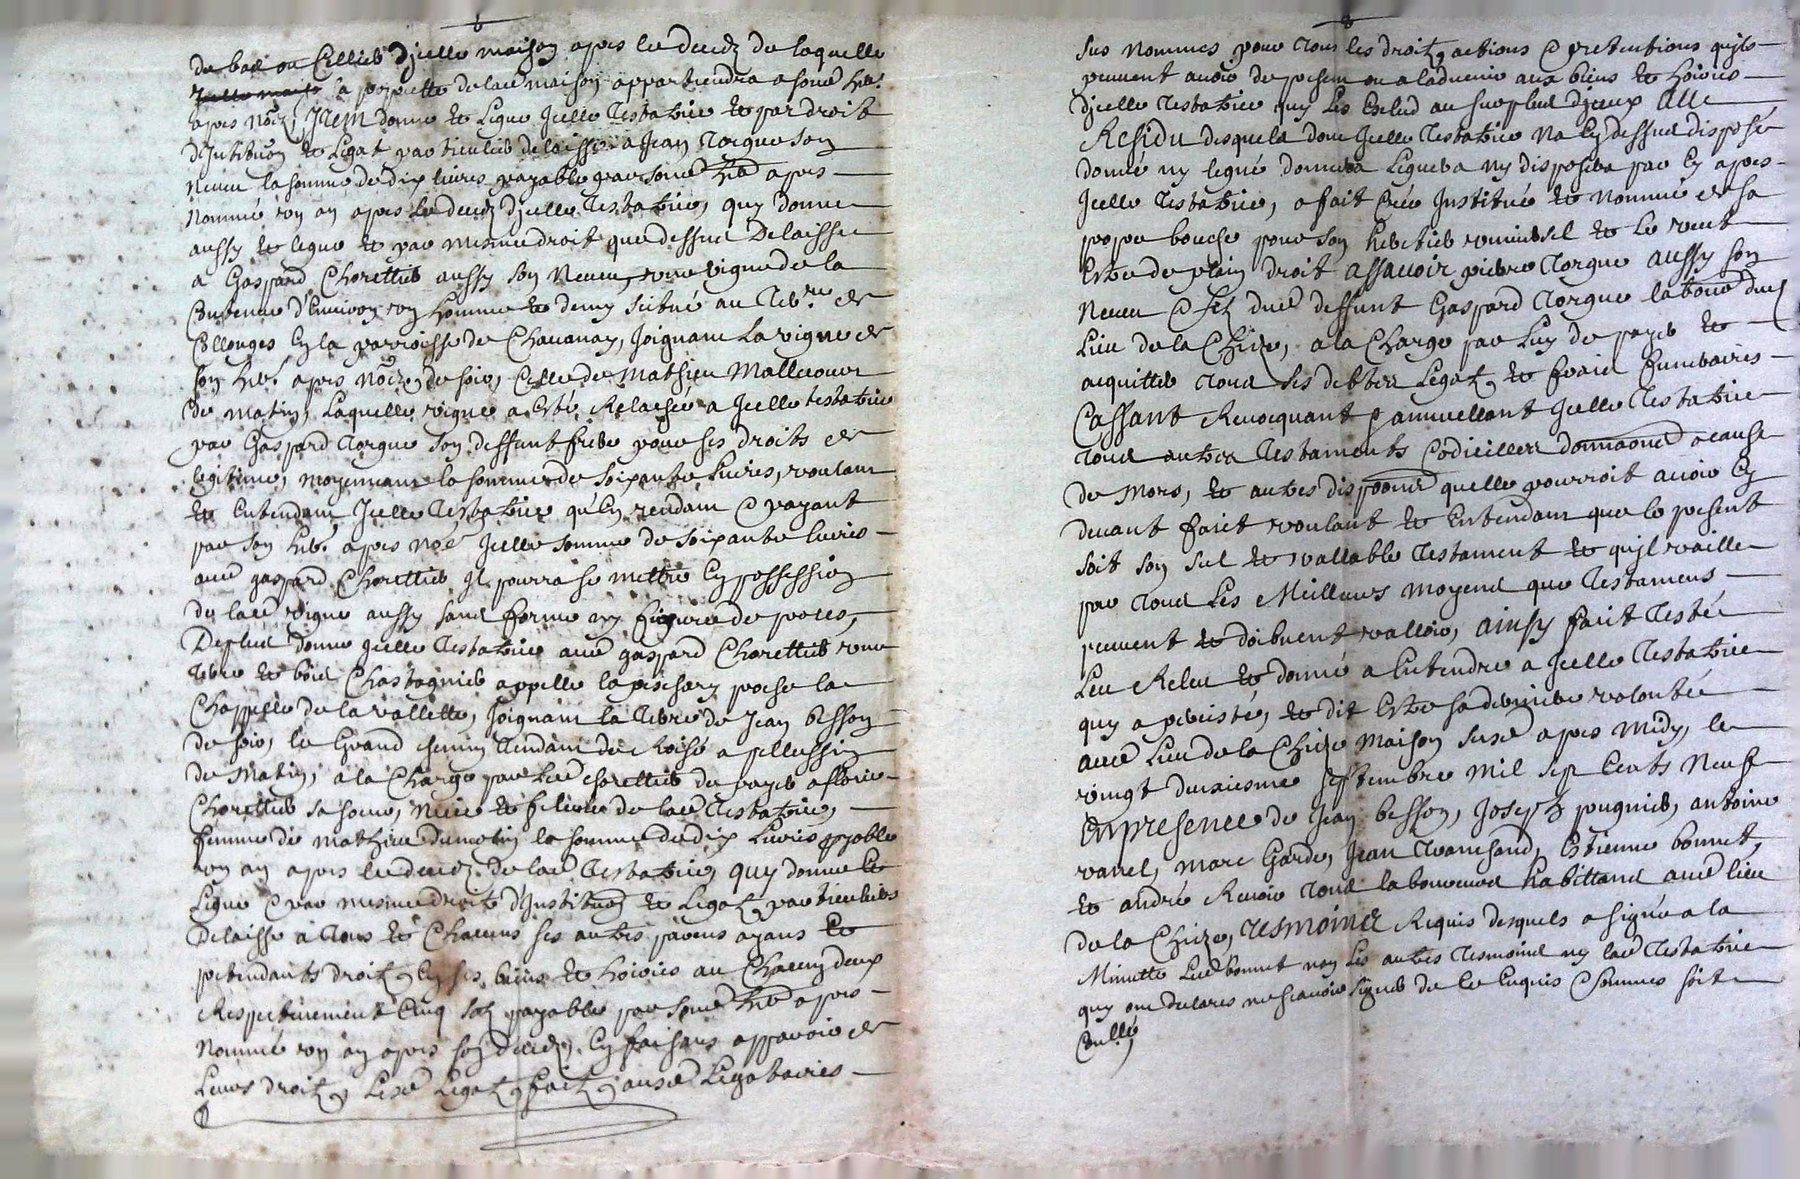 de bas ou Cellier d'jcelle maison apres le decedz de laquelle
la proprietté de lad maison appartiendra a sond her.
apres nōe, Item donne et Legue Jcelle Testatrice et par droit
d'Jntitūon et Legat particulier delaisse a Jean Torgue son
neveu la somme de dix livres payable par sond her apres
nommé ung an apres le decedz d'jcelle Testatrice, quy donne
aussy et legue et par mesme droit que dessus Delaisse
a Gaspard Chorettier aussy son neveu, une vigne de la
Contenue d'Environ ung homme et demy scitué au Terre de
Collonges En la parroisse de Chavanay, Joignant La vigne de
son her. apres nōe de soir, Celle de Mathieu Mallecour
de matin, Laquelle vigne a Esté Relachée a Jcelle testatrice
par Gaspard Torgue son deffunt frere pour ses droits de
legitime, moyennant la somme de soixante Livres, voulant
et Entendant Jcelle Testatrice qu'En rendant e payant
par son her. apres nōe Jcelle somme de soixante livres
aud gaspard Chorettier Jl pourra se mettre En possession
de lad vigne aussy sans forme ny figure de proces,
Deplus donne jcelle Testatrice aud gaspard Chorettier une
Terre et bois Chastagnier appellé la pischary proche la
Chappelle de la vallette, Joignant la Terre de Jean Besson
de soir, le Grand chemin Tendant de Choisé a pellussin
de Matin, a la Charge par led chorettier de payer a florie
Chorettier sa soeur, niece et filieule de lad Testatrice,
femme de Mathieu dumolin la somme de dix Livres payable
ung an apres le decedz de lad Testatrice, quy donne et
Legue e par mesme droit d'Jnstitūon et Legat particulier
Delaisse a Tous et Chacuns ses autres parens ayans et
pretendants droitz En ses biens et hoirie au Chacung deux
Respectivement Cinq solz payable par sond her apres
Nommé ung an apres son decedz, En faisant apparoir de
Leurs droitz, Lesd Legatz faitz ausd Legataires
sus nommes pour tous les droitz, actions e pretentions qu'jls
peuvent avoir de present ou a ladvenir aux biens et hoirie
d'jcelle Testatrice quy Les Exclud au surplus d'jceux Au
Residu desquels dont Jcelle Testatrice na Cy dessus disposé
donné ny legué donnera Leguera ny disposera par Cy apres
Jcelle Testatrice, a fait Crée Jnstitué et nommé de sa
propre bouche pour son heretier universel et Le veut
Estre de plein droit assavoir pierre Torgue aussy son
neveu e filz dud deffunt Gaspard Torgue laboureur dud
Lieu de la Chize, a la Charge par Luy de payer et
acquitter Tous ses debtes Legatz, et frais funeraires
Cassant Revocquant e annuellant Jcelle Testatrice
Tous autres Testaments Codicilles donnaons a cause
de Mors, et autres dispoons quelle pourroit avoir Cy
devant faict voulant et Entendant que le present
soit son seul et vallable Testament et qu'jl vaille
par Tous Les Meilleurs Moyens que Testaments
peuvent et doibvent valloir, ainsy fait Testé
Leu Releu et donné a Entendre a Jcelle Testatrice
quy a persisté, et dit Estre sa derniere volontée
aud Lieu de la Chize Maison susd apres midy, le
vingt deuxiesme septembre mil sept Cents Neuf
En presence de Jean Besson, Joseph pugnier, antoine
vanel, Marc Garde, Jean Tranchand, Estienne bonnet,
et andré Revoir Tous laboureurs habittans aud lieu
de la Chize, Tesmoins Requis desquels a signé a la
Minutte Led bonnet non Les autres Tesmoins ny lad Testatrice
quy ont declares ne scavoir signer de le Enquis e sommes soit
Contllé